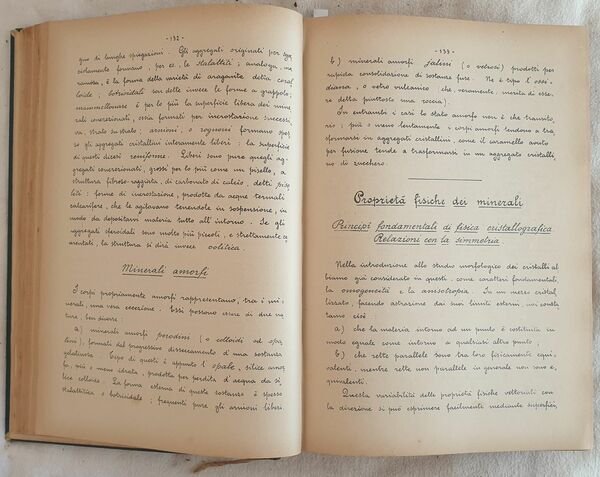 - 132 -
gno di lunghe spiegazioni. Gli aggregati originati per
cidamento formano, per es., le stalattiti; analoga, ma
ramosa, è la forma della varietà di aragonite detta coral
loide; botrioidali son dette invece le forme a grappolo;
mammellonare è per lo più la superficie libera dei mine
rali concrezionati, ossia formati per incrostazione successi
va, strato su strato; arnioni, o rognoni formano spes
so gli aggregati cristallini interamente liberi: la superficie
di questi dicesi reniforme. Liberi sono pure quegli ag
gregati concrezionati, grossi per lo più come un pisello, a
struttura fibroso-raggiata, di carbonato di calcio, detti piso
liti: forme di incrostazione, prodotte da acque termali
calcarifere, che le agitavano tenendole in sospensione, in
modo da depositarvi materia tutto all'intorno. Se gli
aggregati sferoidali sono molto più piccoli, e strettamente ce
mentati, la struttura si dirà invece oolitica.
Minerali amorfi
I corpi propriamente amorfi rappresentano, tra i mi
nerali, una vera eccezione. Essi possono essere di due na
ture, ben diverse:
a) minerali amorfi porodini (o colloidi od opa
lini), formati dal progressivo disseccamento d'una sostanza
gelatinosa. Tipo di questi è appunto l'opale, silice amor
fa, più o meno idrata, prodotta per perdita d'acqua da si
lice colloide. La forma esterna di queste sostanze è spesso
stalattitica o botrioidale; frequenti pure gli arnioni liberi.
- 133 -
b) minerali amorfi jalini (o vetrosi) prodotti per
rapida consolidazione di sostanze fuse. Ne è tipo l'ossi
diana, o vetro vulcanico (che, veramente, merita di esse
re detta piuttosto una roccia).
In entrambi i casi lo stato amorfo non è che transito
rio; più o meno lentamente i corpi amorfi tendono a tra
sformarsi in aggregati cristallini, come il caramello avuto
per fusione tende a trasformarsi in un aggregato cristalli
no di zucchero.
Proprietà fisiche dei minerali
Principî fondamentali di fisica cristallografica
Relazioni con la simmetria
Nella introduzione allo studio morfologico dei cristalli ab
biamo già considerato in questi, come caratteri fondamentali,
la omogeneità e la anisotropia. In un mezzo cristal
lizzato, facendo astrazione dai suoi limiti esterni, noi consta
tiamo cioè:
a) che la materia intorno ad un punto è costituita in
modo eguale come intorno a qualsiasi altro punto;
b) che rette parallele sono tra loro fisicamente equi
valenti, mentre rette non parallele in generale non sono e
quivalenti.
Questa variabilità delle proprietà fisiche vettoriali con
la direzione si può esprimere facilmente mediante superfici,